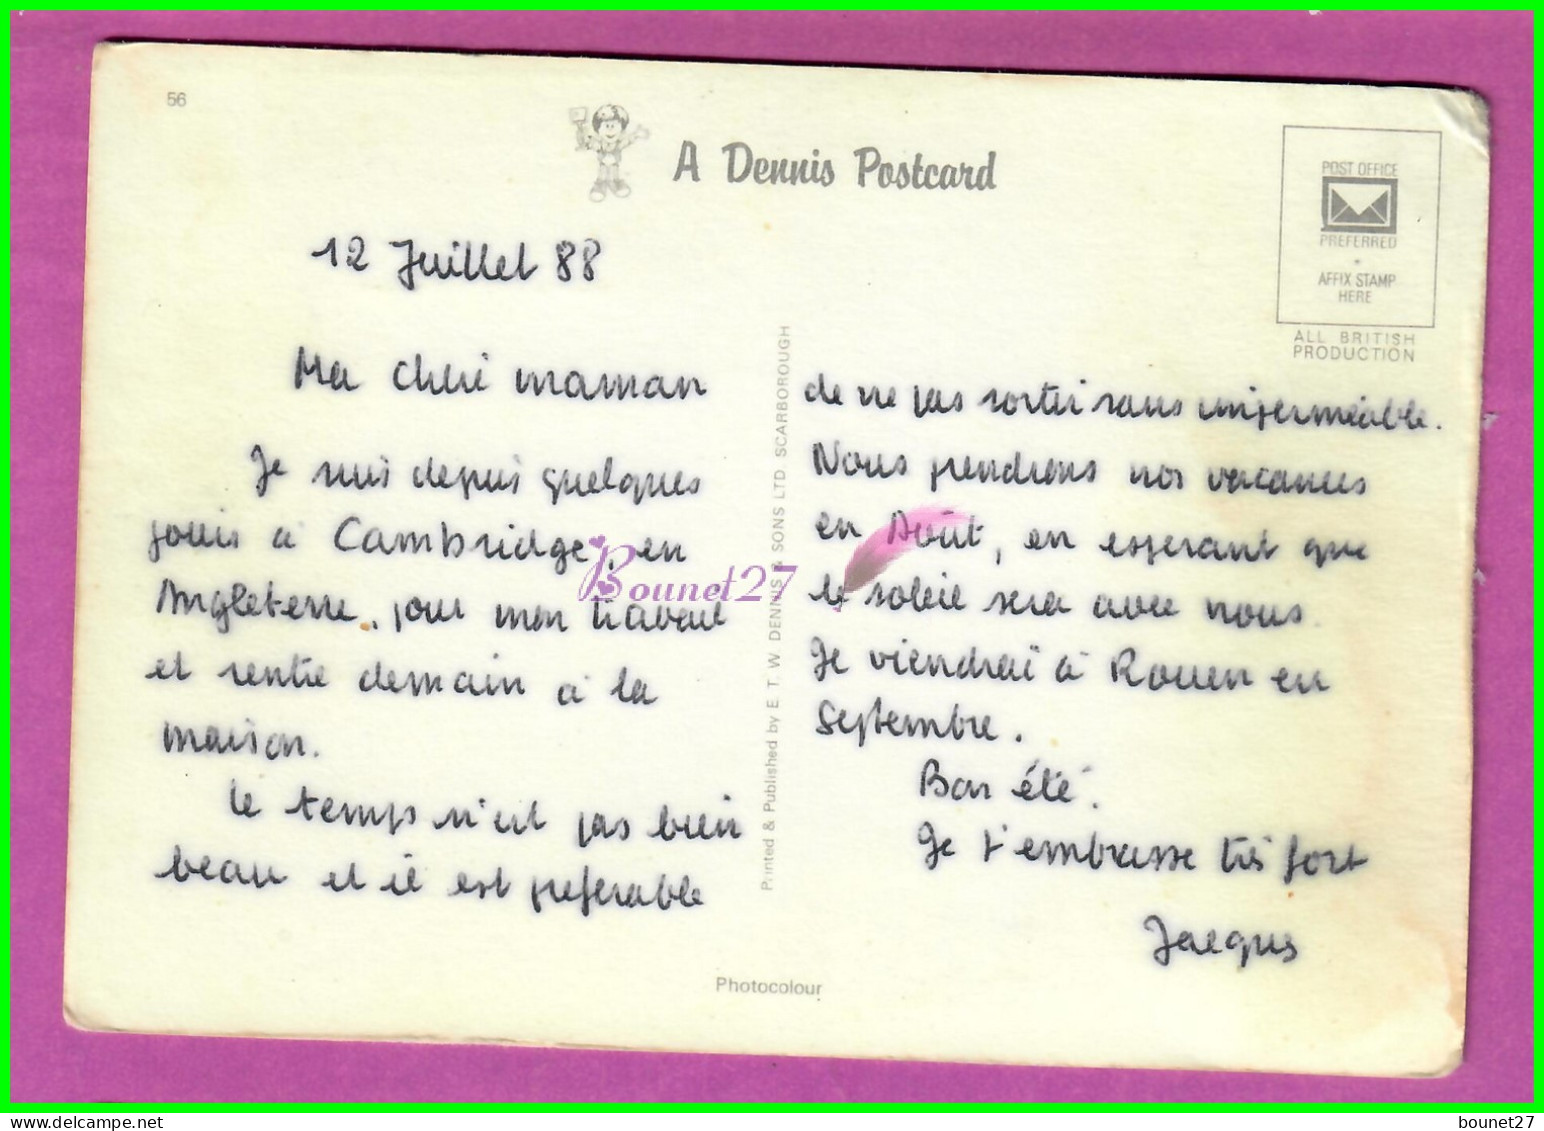 56
A Dennis Postcard
POST OFFICE
PREFERRED
AFFIX STAMP
HERE
ALL BRITISH
PRODUCTION
12 Juillet 88
Ma chère maman
Je suis depuis quelques
jours à Cambridge, en
Angleterre, pour mon travail
et rentre demain à la
maison.
Le temps n'est pas bien
beau et il est preferable
de ne pas sortir sans imperméable.
Nous prendrons nos vacances
en Août, en esperant que
le soleil sera avec nous.
Je viendrai à Rouen en
Septembre.
Bon été.
Je t'embrasse très fort
Jacques
Printed & Published by E. T. W. DENNIS & SONS LTD. SCARBOROUGH
Photocolour
Bounet27
bounet27